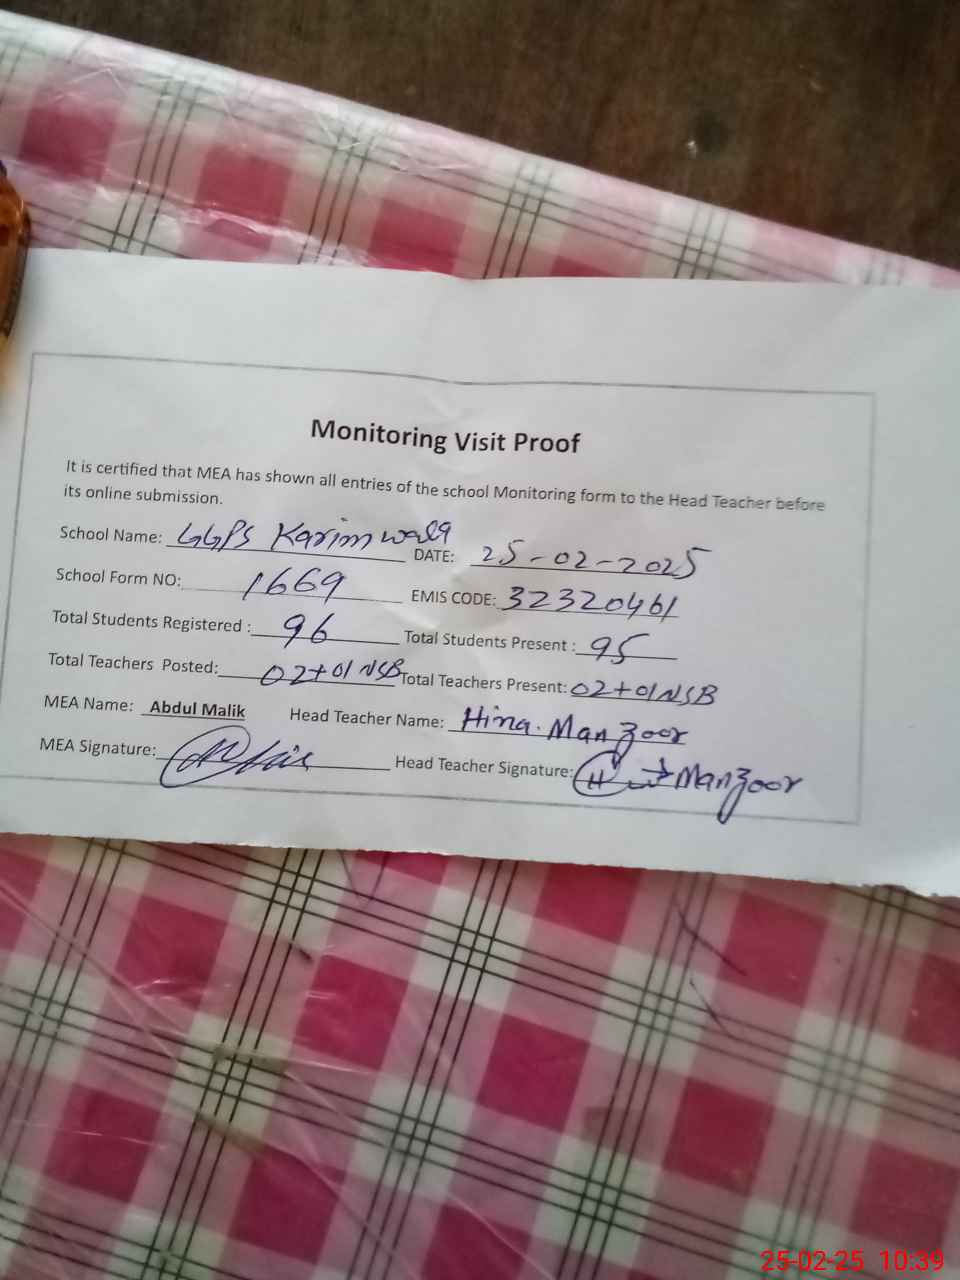 Monitoring Visit Proof
It is certified that MEA has shown all entries of the school Monitoring form to the Head Teacher before
its online submission.
School Name: GGPS Karim wala DATE: 25-02-2025
School Form NO: 1669 EMIS CODE: 32320461
Total Students Registered : 96 Total Students Present : 95
Total Teachers Posted: 02+01 NSB Total Teachers Present: 02+01 NSB
MEA Name: Abdul Malik Head Teacher Name: Hina. Manzoor
MEA Signature: Head Teacher Signature: Manzoor
25-02-25 10:39